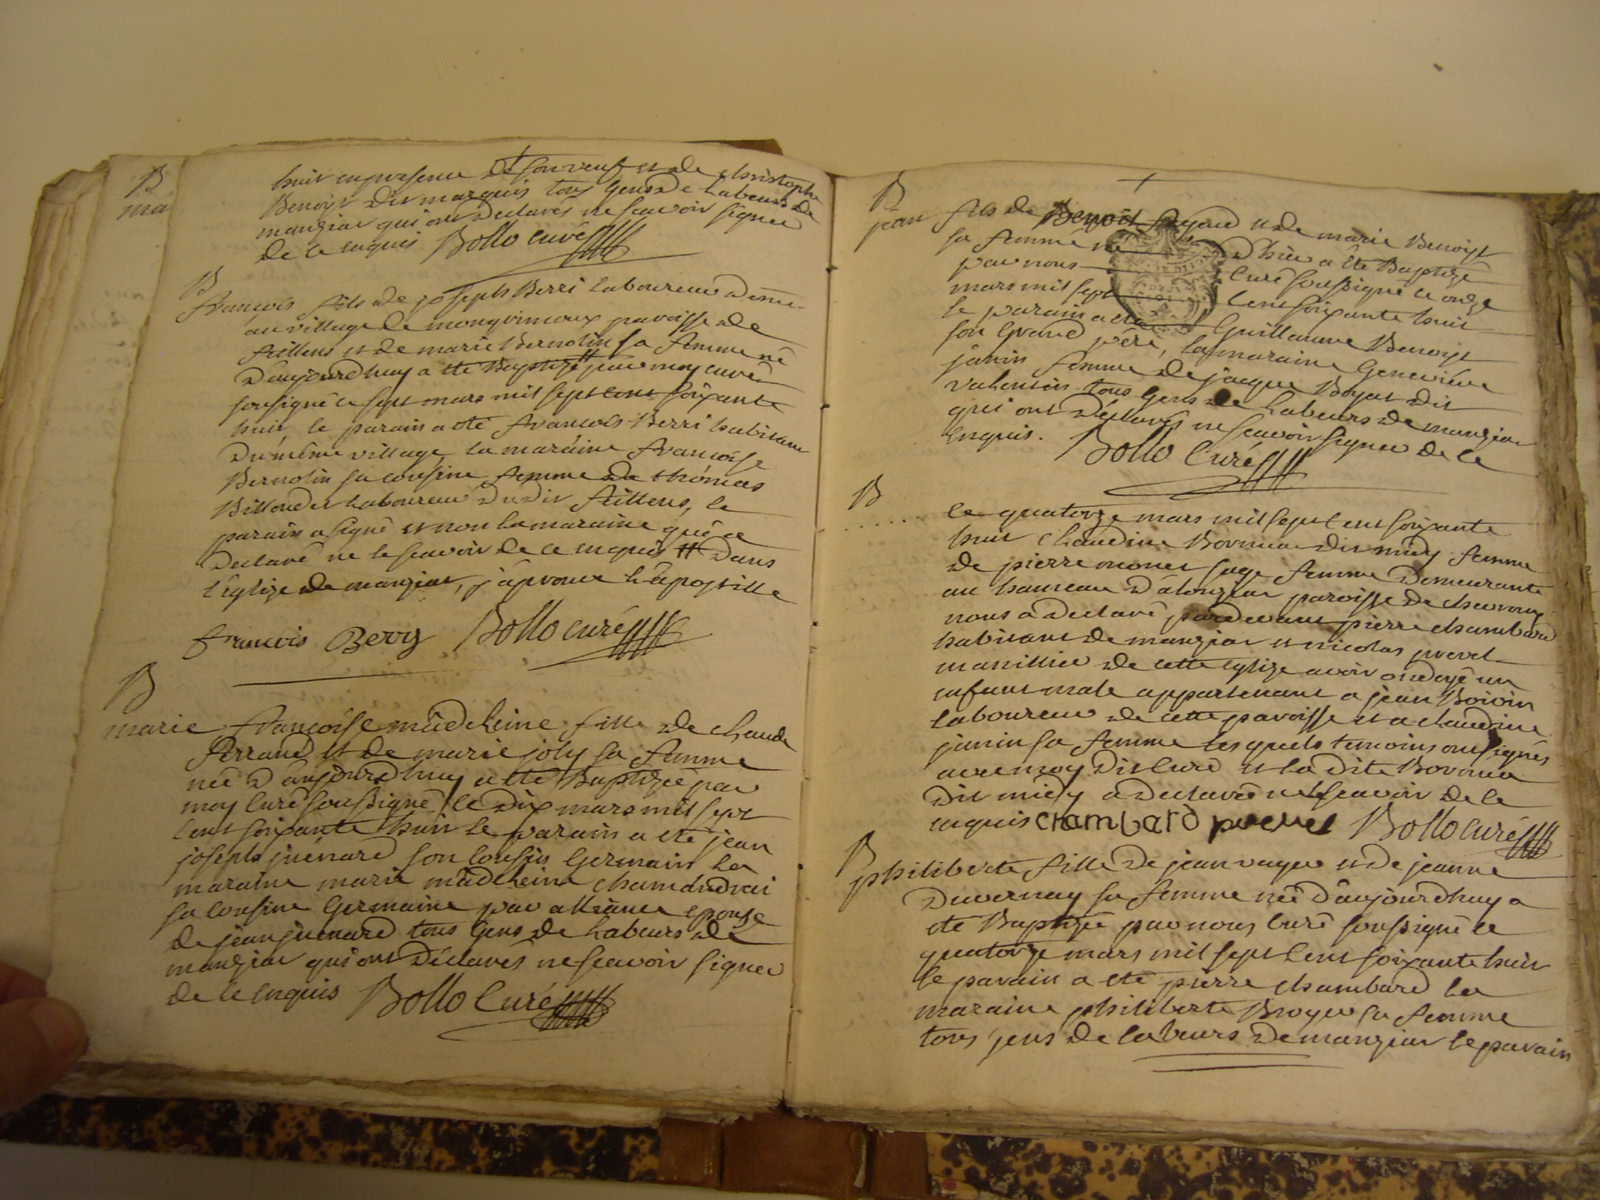 B
mar
huit en presence de son neuf et de christophe
Benoist dit marquis tous gens de Labeurs de
manziat qui ont declarés ne scavoir signer
de ce enquis Bollo curé
B
francois fils de joseph Berri Laboureur dem.
au village de paroisse de
et de marie Bernolin sa femme né
d'aujourdhuy a eté Baptizé par moy curé
sousigné ce sept mars mil sept cent soixante
huit le parain a eté francois Berri habitant
du même village la maraine francoise
Bernolin sa cousine femme de thomas
Laboureur dudit le
parain a signé et non la maraine qui a
declaré ne le scavoir de ce enquis dans
l'église de manziat, j'aprouve l'apostille
francois Bery Bollo curé
B
marie francoise madeleine fille de claude
ferrand et de marie joly sa femme
née d'aujourdhuy a eté Baptizée par
moy curé soussigné le dix mars mil sept
cent soixante huit le parain a eté jean
joseph juenard son cousin germain la
maraine marie madeleine
sa cousine germaine par alliance epouse
de jean juenard tous gens de Labeurs de
manziat qui ont déclarés ne scavoir signer
de ce enquis Bollo curé
B
jean fils de Benoit fayard et de marie Benoist
sa femme né d'hier a eté Baptizé
par nous curé soussigné ce onze
mars mil sept cent soixante huit
le parain a eté Guillaume Benoist
son grand pere, la maraine Genevieve
janin femme de jacque Boyat dit
valentin tous gens de Labeurs de manziat
qui ont déclarés ne scavoir signer de ce
enquis. Bollo curé
B
le quatorze mars mil sept cent soixante
huit claudine dit midy femme
de pierre monet sage femme demeurante
au hameau d'alonziat paroisse de chevroux
nous a declaré pardevant pierre chambard
habitant de manziat et nicolas prevel
manillier de cette eglise avoir ondoyé un
enfant male appartenant a jean Boivin
laboureur de cette paroisse et a claudine
janin sa femme lesquels temoins ont signés
avec moy dit curé et la dite
dit midy a declaré ne scavoir de ce
enquis CHAMBARD prevel Bollo curé
B
philiberte fille de jean voyer et de jeanne
Duvernay sa femme née d'aujourdhuy a
eté Baptizée par nous curé soussigné ce
quatorze mars mil sept cent soixante huit
le parain a eté pierre chambard la
maraine philiberte Broyer sa femme
tous gens de labeurs de manziat le parain